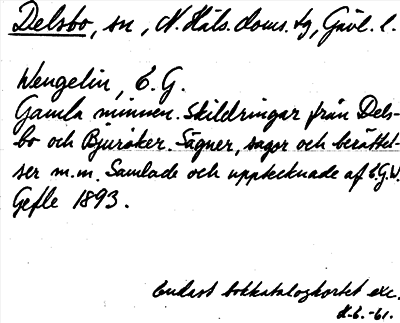 Delsbo, sn, N. Häls. doms. tg, Gävl. l.
Wengelin, E. G.
Gamla minnen. Skildringar från Dels-
bo och Bjuråker. Sägner, sagor och berättel-
ser m.m. Samlade och upptecknade af E.G.W.
Gefle 1893.
Endast bokkatalogkortet exc.
H.E.-61.